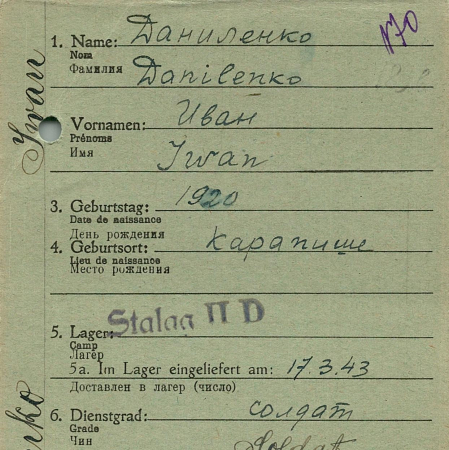 170
1. Name: Даниленко
Nom
Фамилия Danilenko
Vornamen: Иван
Prénoms
Имя Iwan
3. Geburtstag: 1920
Date de naissance
День рождения
4. Geburtsort: Карапише
Lieu de naissance
Место рождения
5. Lager: Stalag II D
Camp
Лагерь
5a. Im Lager eingeliefert am: 17.3.43
Доставлен в лагерь (число)
6. Dienstgrad: солдат
Grade
Чин Soldat
Iwan